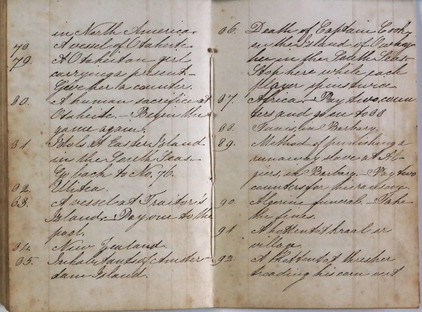 in North America.
78. A vessel of Otaheite.
79. A Otaheitan girl
carrying a present.
Give her 4 counters.
80. A human sacrifice at
Otaheite. Begin the
game again.
81. Idols at Easter Island
in the South Seas.
Go back to No. 76.
82. Ulitea.
83. A vessel at Traitor's
Island. Pay one to the
pool.
84. New Zealand.
85. Inhabitants of Amster-
dam Island.
86. Death of Captain Cook
in the Island of Owhy-
hee in the South Seas.
Stop here while each
player spins twice.
87. Africa. Pay two coun-
ters and go on to
88. Tunis, in Barbary.
89. Method of punishing a
runaway slave at Al-
giers, in Barbary. Pay two
counters for his ransom.
90. Algerine funeral. Take
the fines.
91. A Hottentot kraal or
village.
92. A Hottentot thresher
treading his corn out